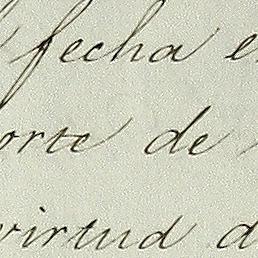 fecha e
orte de
virtud d